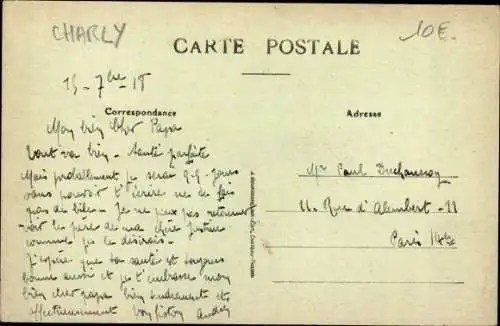 CHARLY
10E.
CARTE POSTALE
15-7bre-18
Correspondance
Adresse
Mon bien Cher Papa
Tout va bien - Santé parfaite
Mais probablement je serai q.q. jours
sans pouvoir t'écrire ne te fais
pas de bile - Je ne peux pas retourner
voir le père de ma chère Justine
comme je le désirais -
J'espère que ta santé est toujours
bonne aussi et je t'embrasse mon
bien cher papa bien tendrement et
affectueusement ton fiston André
Mr Paul Duchaussoy
11 - Rue d'Alembert - 11
Paris 14e